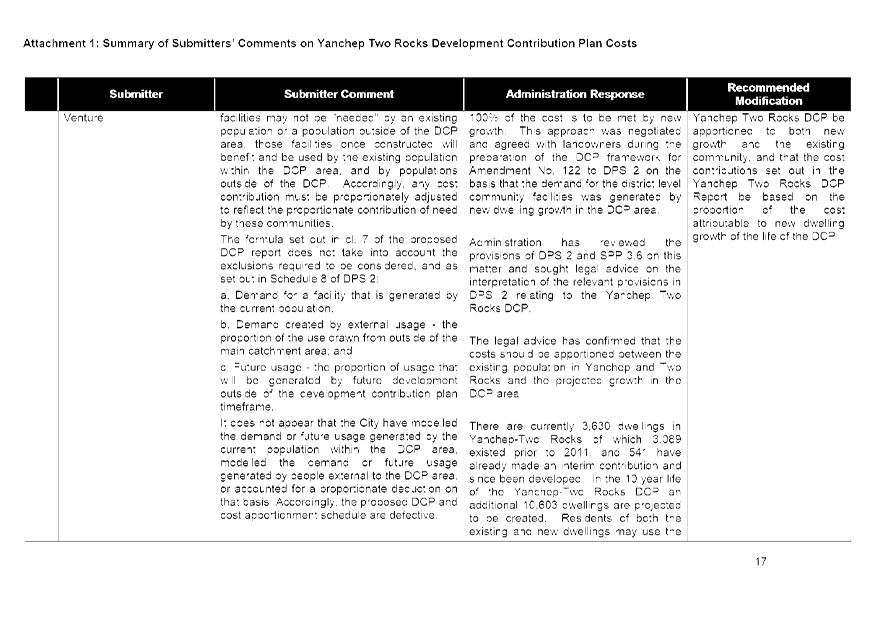 Attachment 1: Summary of Submitters' Comments on Yanchep Two Rocks Development Contribution Plan Costs
Submitter
Submitter Comment
Administration Response
Recommended
Modification
Venture
facilities may not be "needed" by an existing
population or a population outside of the DCP
area, those facilities once constructed will
benefit and be used by the existing population
within the DCP area, and by populations
outside of the DCP. Accordingly, any cost
contribution must be proportionately adjusted
to reflect the proportionate contribution of need
by these communities.
The formula set out in cl. 7 of the proposed
DCP report does not take into account the
exclusions required to be considered, and as
set out in Schedule 8 of DPS 2:
a. Demand for a facility that is generated by
the current population.
b. Demand created by external usage - the
proportion of the use drawn from outside of the
main catchment area; and
c. Future usage - the proportion of usage that
will be generated by future development
outside of the development contribution plan
timeframe.
It does not appear that the City have modelled
the demand or future usage generated by the
current population within the DCP area,
modelled the demand or future usage
generated by people external to the DCP area,
or accounted for a proportionate deduction on
that basis. Accordingly, the proposed DCP and
cost apportionment schedule are defective.
100% of the cost is to be met by new
growth. This approach was negotiated
and agreed with landowners during the
preparation of the DCP framework for
Amendment No. 122 to DPS 2 on the
basis that the demand for the district level
community facilities was generated by
new dwelling growth in the DCP area.
Administration has reviewed the
provisions of DPS 2 and SPP 3.6 on this
matter and sought legal advice on the
interpretation of the relevant provisions in
DPS 2 relating to the Yanchep Two
Rocks DCP.
The legal advice has confirmed that the
costs should be apportioned between the
existing population in Yanchep and Two
Rocks and the projected growth in the
DCP area
There are currently 3,630 dwellings in
Yanchep-Two Rocks of which 3,089
existed prior to 2011, and 541 have
already made an interim contribution and
since been developed. In the 10 year life
of the Yanchep-Two Rocks DCP an
additional 10,603 dwellings are projected
to be created. Residents of both the
existing and new dwellings may use the
Yanchep Two Rocks DCP be
apportioned to both new
growth and the existing
community, and that the cost
contributions set out in the
Yanchep Two Rocks DCP
Report be based on the
proportion of the cost
attributable to new dwelling
growth of the life of the DCP
17